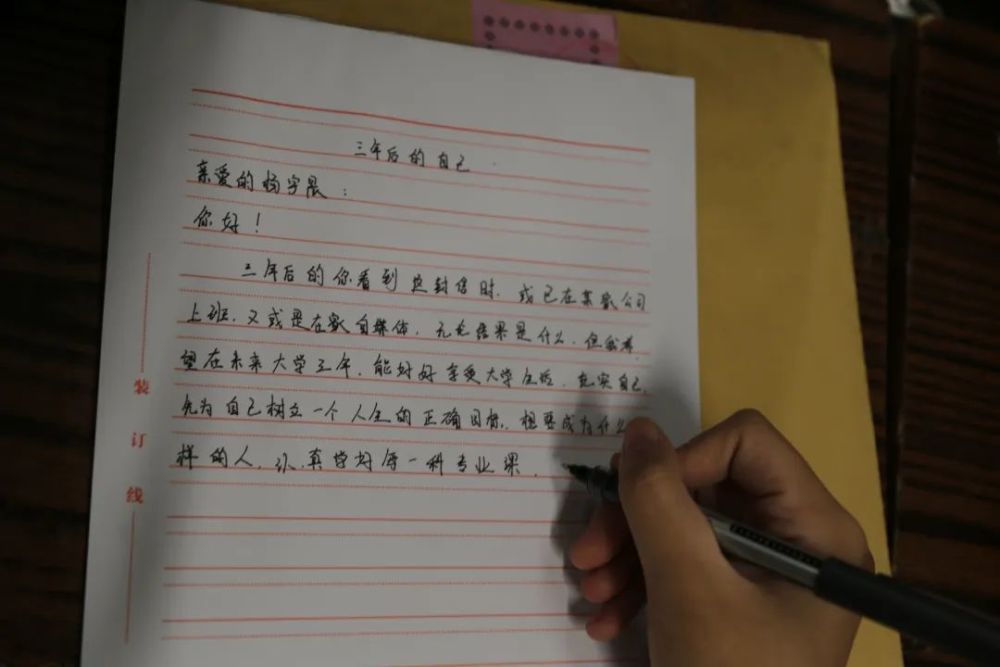 三年后的自己
亲爱的杨宇晨：
你好！
三年后的你看到这封信时，或已在某家公司
上班，又或是在做自媒体，无论结果是什么，但我希
望在未来大学三年，能好好享受大学生活，充实自己，
先为自己树立一个人生的正确目标，想要成为什么
样的人，认真学好每一科专业课，
装
订
线